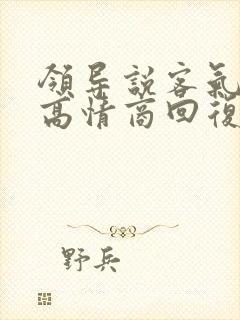 領导説客氣
高情商回復
野兵